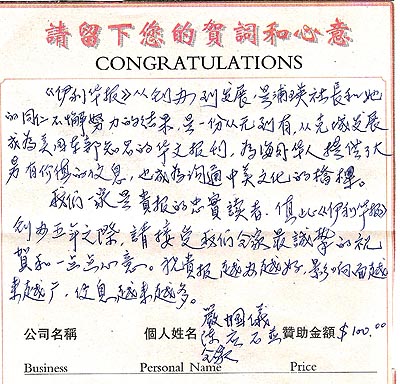 請留下您的賀詞和心意
CONGRATULATIONS
《伊利华报》从创办到发展，是浦瑛社長和她
的同仁不懈努力的结果，是一份从无到有，从克城发展
成為美国东部知名的华文报刊，為海外华人提供了大
量有价值的信息，也成為溝通中美文化的橋樑。
我们一家是貴報的忠實讀者，值此《伊利华报》
创办五年之際，請接受我们全家最誠摯的祝
賀和一点点心意。祝贵报越办越好，影响面越
来越广，信息越来越多。
嚴 儀
公司名稱 個人姓名 陈 贊助金額 $100.00
全家
Business Personal Name Price